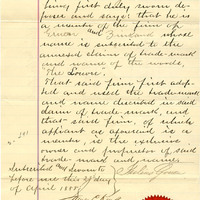 firm, first duly sworn de-
poses and says: that he is
a member of the firm of
and
name is subscribed to the
annexed claim of trade-mark
and name of the words,
The Louvre.
That said firm first adop-
ted and used the trade-mark
and name described in said
claim of trade-mark, and
that said firm, of which
affiant as aforesaid is a
member, is the exclusive
owner and proprietor of said
trade-mark and name.
Subscribed and sworn to
before me this day
of April 188